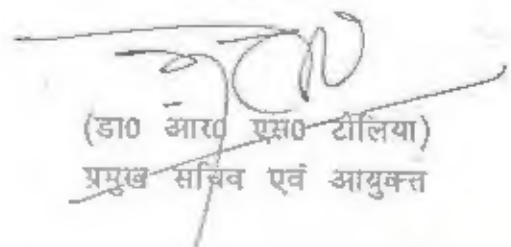 (डा० आर० एस० टोलिया)
प्रमुख सचिव एवं आयुक्त